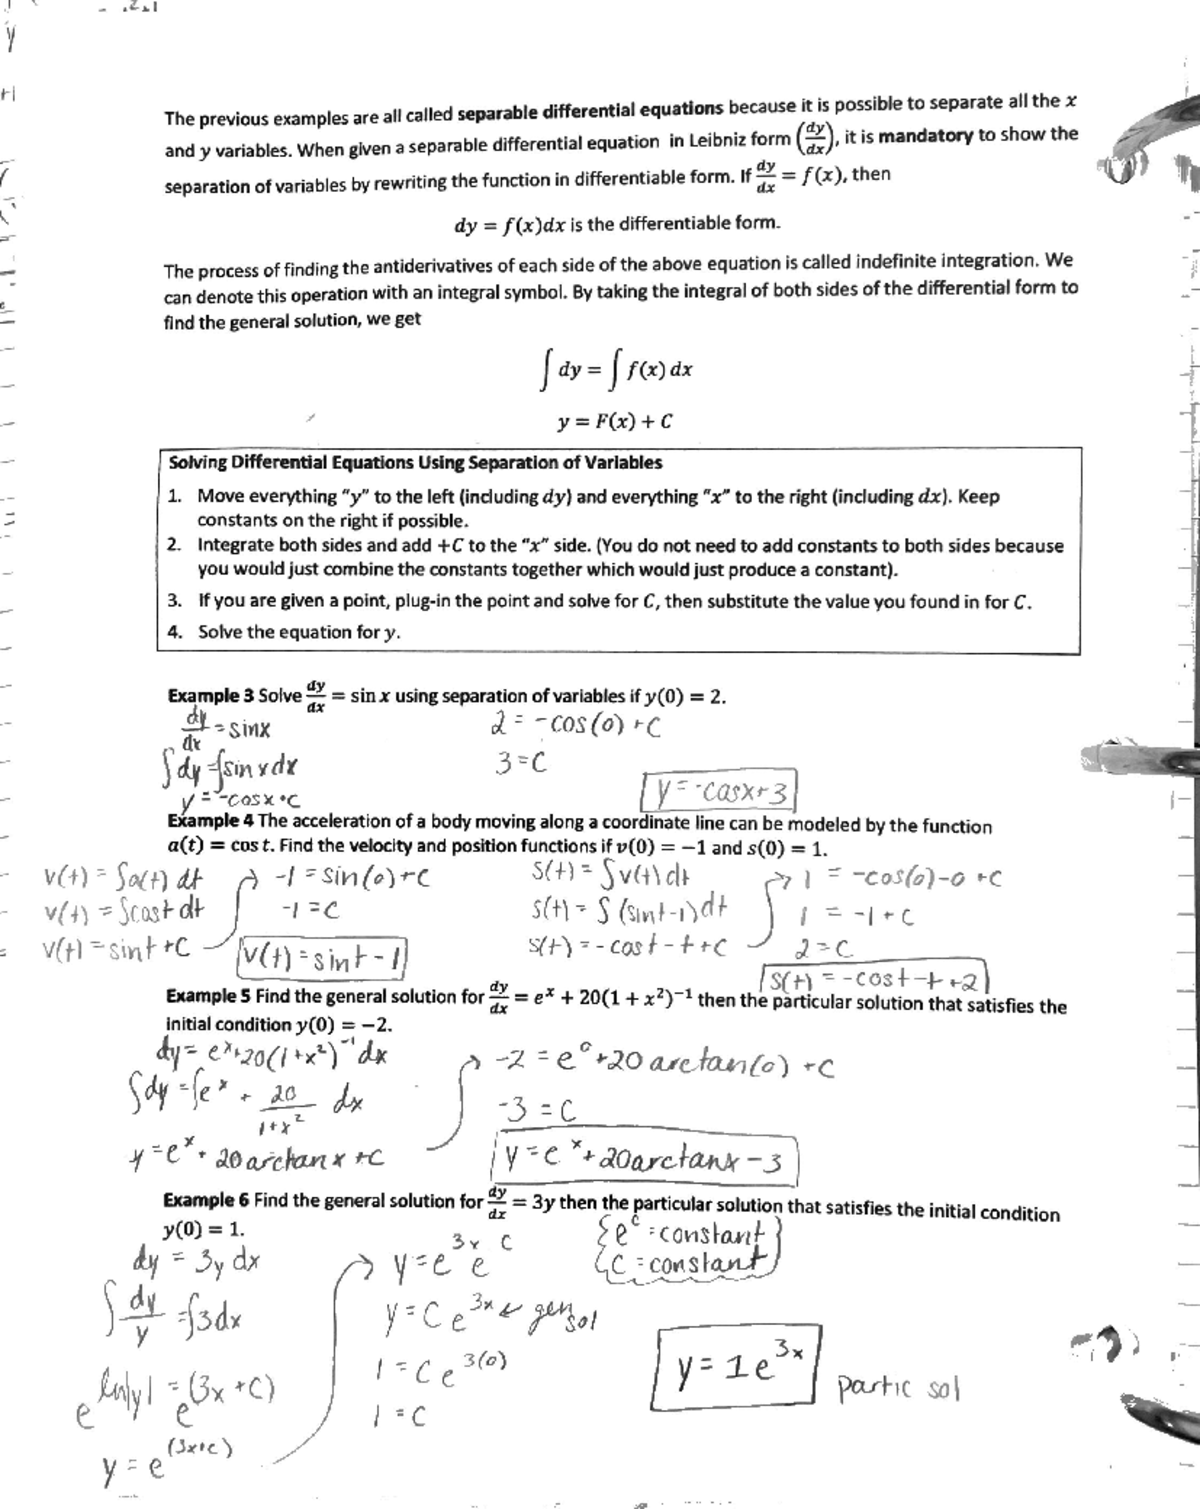 The previous examples are all called separable differential equations because it is possible to separate all the x
and y variables. When given a separable differential equation in Leibniz form (dy/dx), it is mandatory to show the
separation of variables by rewriting the function in differentiable form. If dy/dx = f(x), then
dy = f(x)dx is the differentiable form.
The process of finding the antiderivatives of each side of the above equation is called indefinite integration. We
can denote this operation with an integral symbol. By taking the integral of both sides of the differential form to
find the general solution, we get
∫ dy = ∫ f(x) dx
y = F(x) + C
Solving Differential Equations Using Separation of Variables
1. Move everything "y" to the left (including dy) and everything "x" to the right (including dx). Keep
constants on the right if possible.
2. Integrate both sides and add +C to the "x" side. (You do not need to add constants to both sides because
you would just combine the constants together which would just produce a constant).
3. If you are given a point, plug-in the point and solve for C, then substitute the value you found in for C.
4. Solve the equation for y.
Example 3 Solve dy/dx = sin x using separation of variables if y(0) = 2.
dy/dx = sinx
∫dy = ∫sinxdx
y = -cosx + C
2 = -cos(0) + C
3 = C
y = -cosx+3
Example 4 The acceleration of a body moving along a coordinate line can be modeled by the function
a(t) = cos t. Find the velocity and position functions if v(0) = −1 and s(0) = 1.
v(t) = ∫a(t) dt
v(t) = ∫cost dt
v(t) = sint + C
-1 = sin(0) + C
-1 = C
v(t) = sint - 1
s(t) = ∫v(t) dt
s(t) = ∫(sint-1)dt
s(t) = -cost - t + C
1 = -cos(0) - 0 + C
1 = -1 + C
2 = C
s(t) = -cost - t + 2
Example 5 Find the general solution for dy/dx = eˣ + 20(1 + x²)⁻¹ then the particular solution that satisfies the
initial condition y(0) = −2.
dy = eˣ+20(1+x²)⁻¹ dx
∫dy = ∫eˣ + 20/(1+x²) dx
y = eˣ + 20arctanx + C
-2 = e⁰ + 20 arctan(0) + C
-3 = C
y = eˣ + 20arctanx - 3
Example 6 Find the general solution for dy/dx = 3y then the particular solution that satisfies the initial condition
y(0) = 1.
dy = 3y dx
∫dy/y = ∫3dx
e^ln|y| = e^(3x+C)
y = e^(3x+C)
y = e^3x e^C
y = Ce^3x ← gen sol
1 = Ce^3(0)
1 = C
{e^C = constant}
{C = constant}
y = 1e^3x
partic sol